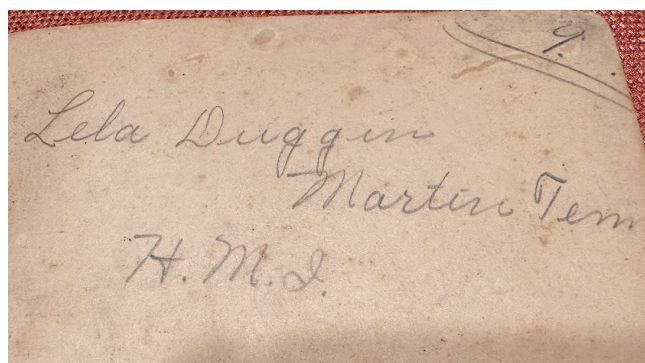 9.
Lela Duggin
Martin Tenn
H. M. I.